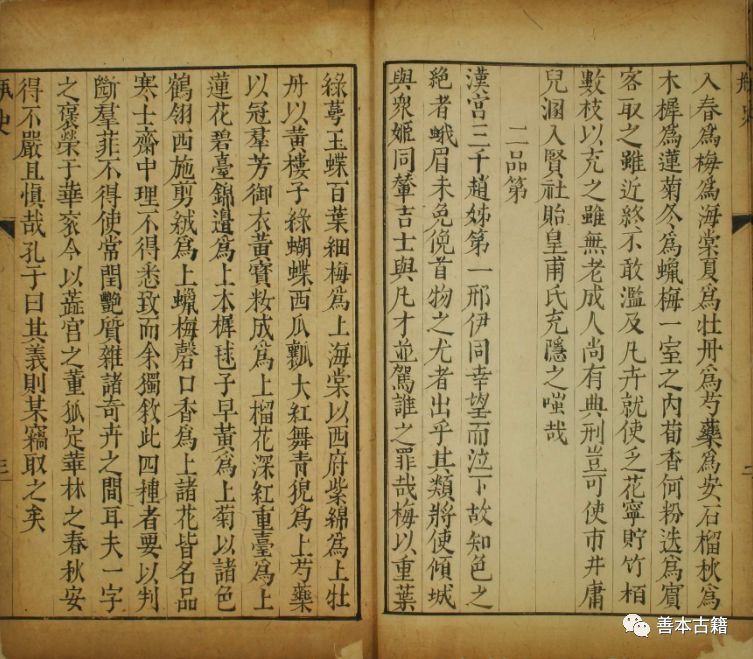 瓶史
二
入春為梅為海棠夏為牡丹為芍藥為安石榴秋為
木樨為蓮菊冬為蠟梅一室之內荀香何粉迭為賓
客取之雖近終不敢濫及凡卉就使乏花寧貯竹栢
數枝以充之雖無老成人尚有典刑豈可使市井庸
兒溷入賢社貽皇甫氏充隱之嗤哉
二品第
漢宮三千趙姊第一邢伊同幸望而泣下故知色之
絕者蛾眉未免俛首物之尤者出乎其類將使傾城
與衆姬同輦吉士與凡才並駕誰之罪哉梅以重葉
綠萼玉蝶百葉細梅為上海棠以西府紫綿為上牡
丹以黃樓子綠蝴蝶西瓜瓤大紅舞青猊為上芍藥
以冠羣芳御衣黃寶粧成為上榴花深紅重臺為上
蓮花碧臺錦邊為上木樨毬子早黃為上菊以諸色
鶴翎西施剪絨為上蠟梅磬口香為上諸花皆名品
寒士齋中理不得悉致而余獨敘此四種者要以判
斷羣菲不得使常閨艷質雜諸奇卉之間耳夫一字
之褒榮于華袞今以蕋宮之董狐定華林之春秋安
得不嚴且慎哉孔子曰其義則某竊取之矣
瓶史
三
善本古籍